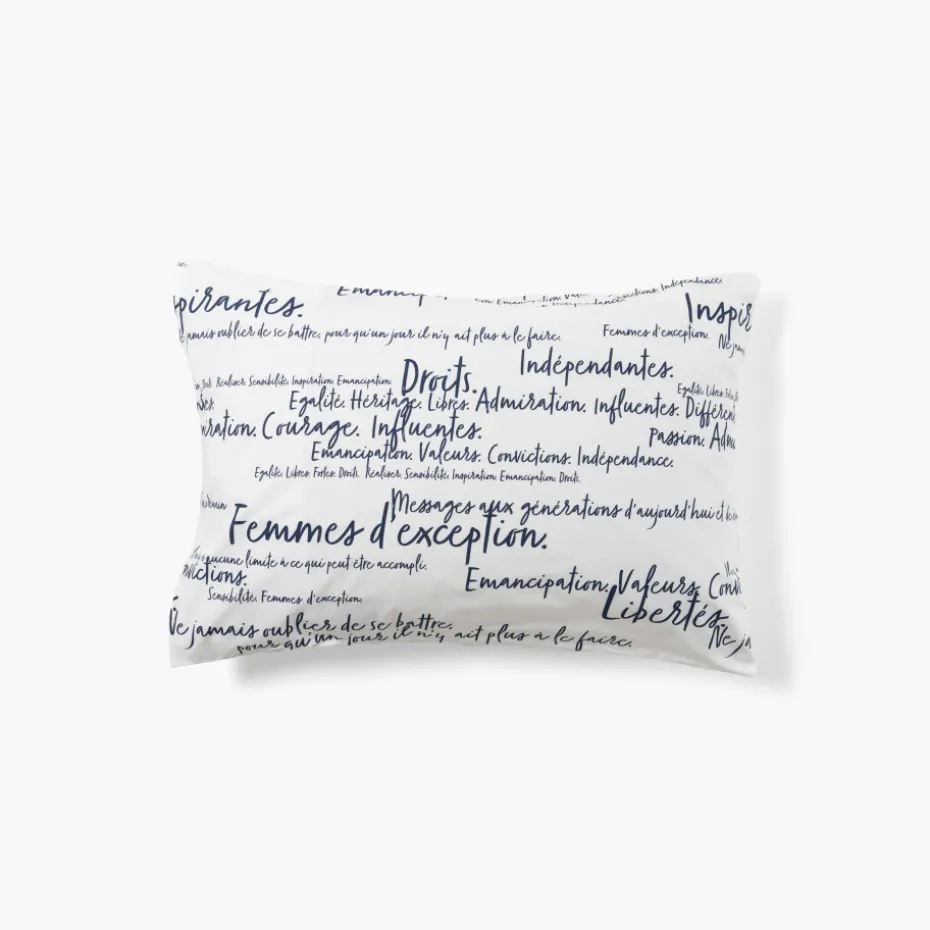 Emancip
Emancipation. Valeu
victions. Indépendance.
Indépendance.
spirantes.
Inspir
amais oublier de se battre, pour qu'un jour il n'y ait plus à le faire.
Femmes d'exception.
Ne jam
Indépendantes.
Réaliser. Sensibilité. Inspiration. Emancipation.
Droits.
Egalité. Libres.
Egalité. Héritage. Libres. Admiration. Influentes. Différen
iration. Courage. Influentes.
Passion. Adm
Emancipation. Valeurs. Convictions. Indépendance.
Egalité. Libres. Fortes. Droits. Réaliser. Sensibilité. Inspiration. Emancipation. Droits.
Messages aux générations d'aujourd'hui et de
Femmes d'exception.
aucune limite à ce qui peut être accompli.
victions.
Emancipation. Valeurs. Convi
Sensibilité. Femmes d'exception.
Libertés.
Ne jamais oublier de se battre,
Ne ja
pour qu'un jour il n'y ait plus à le faire.